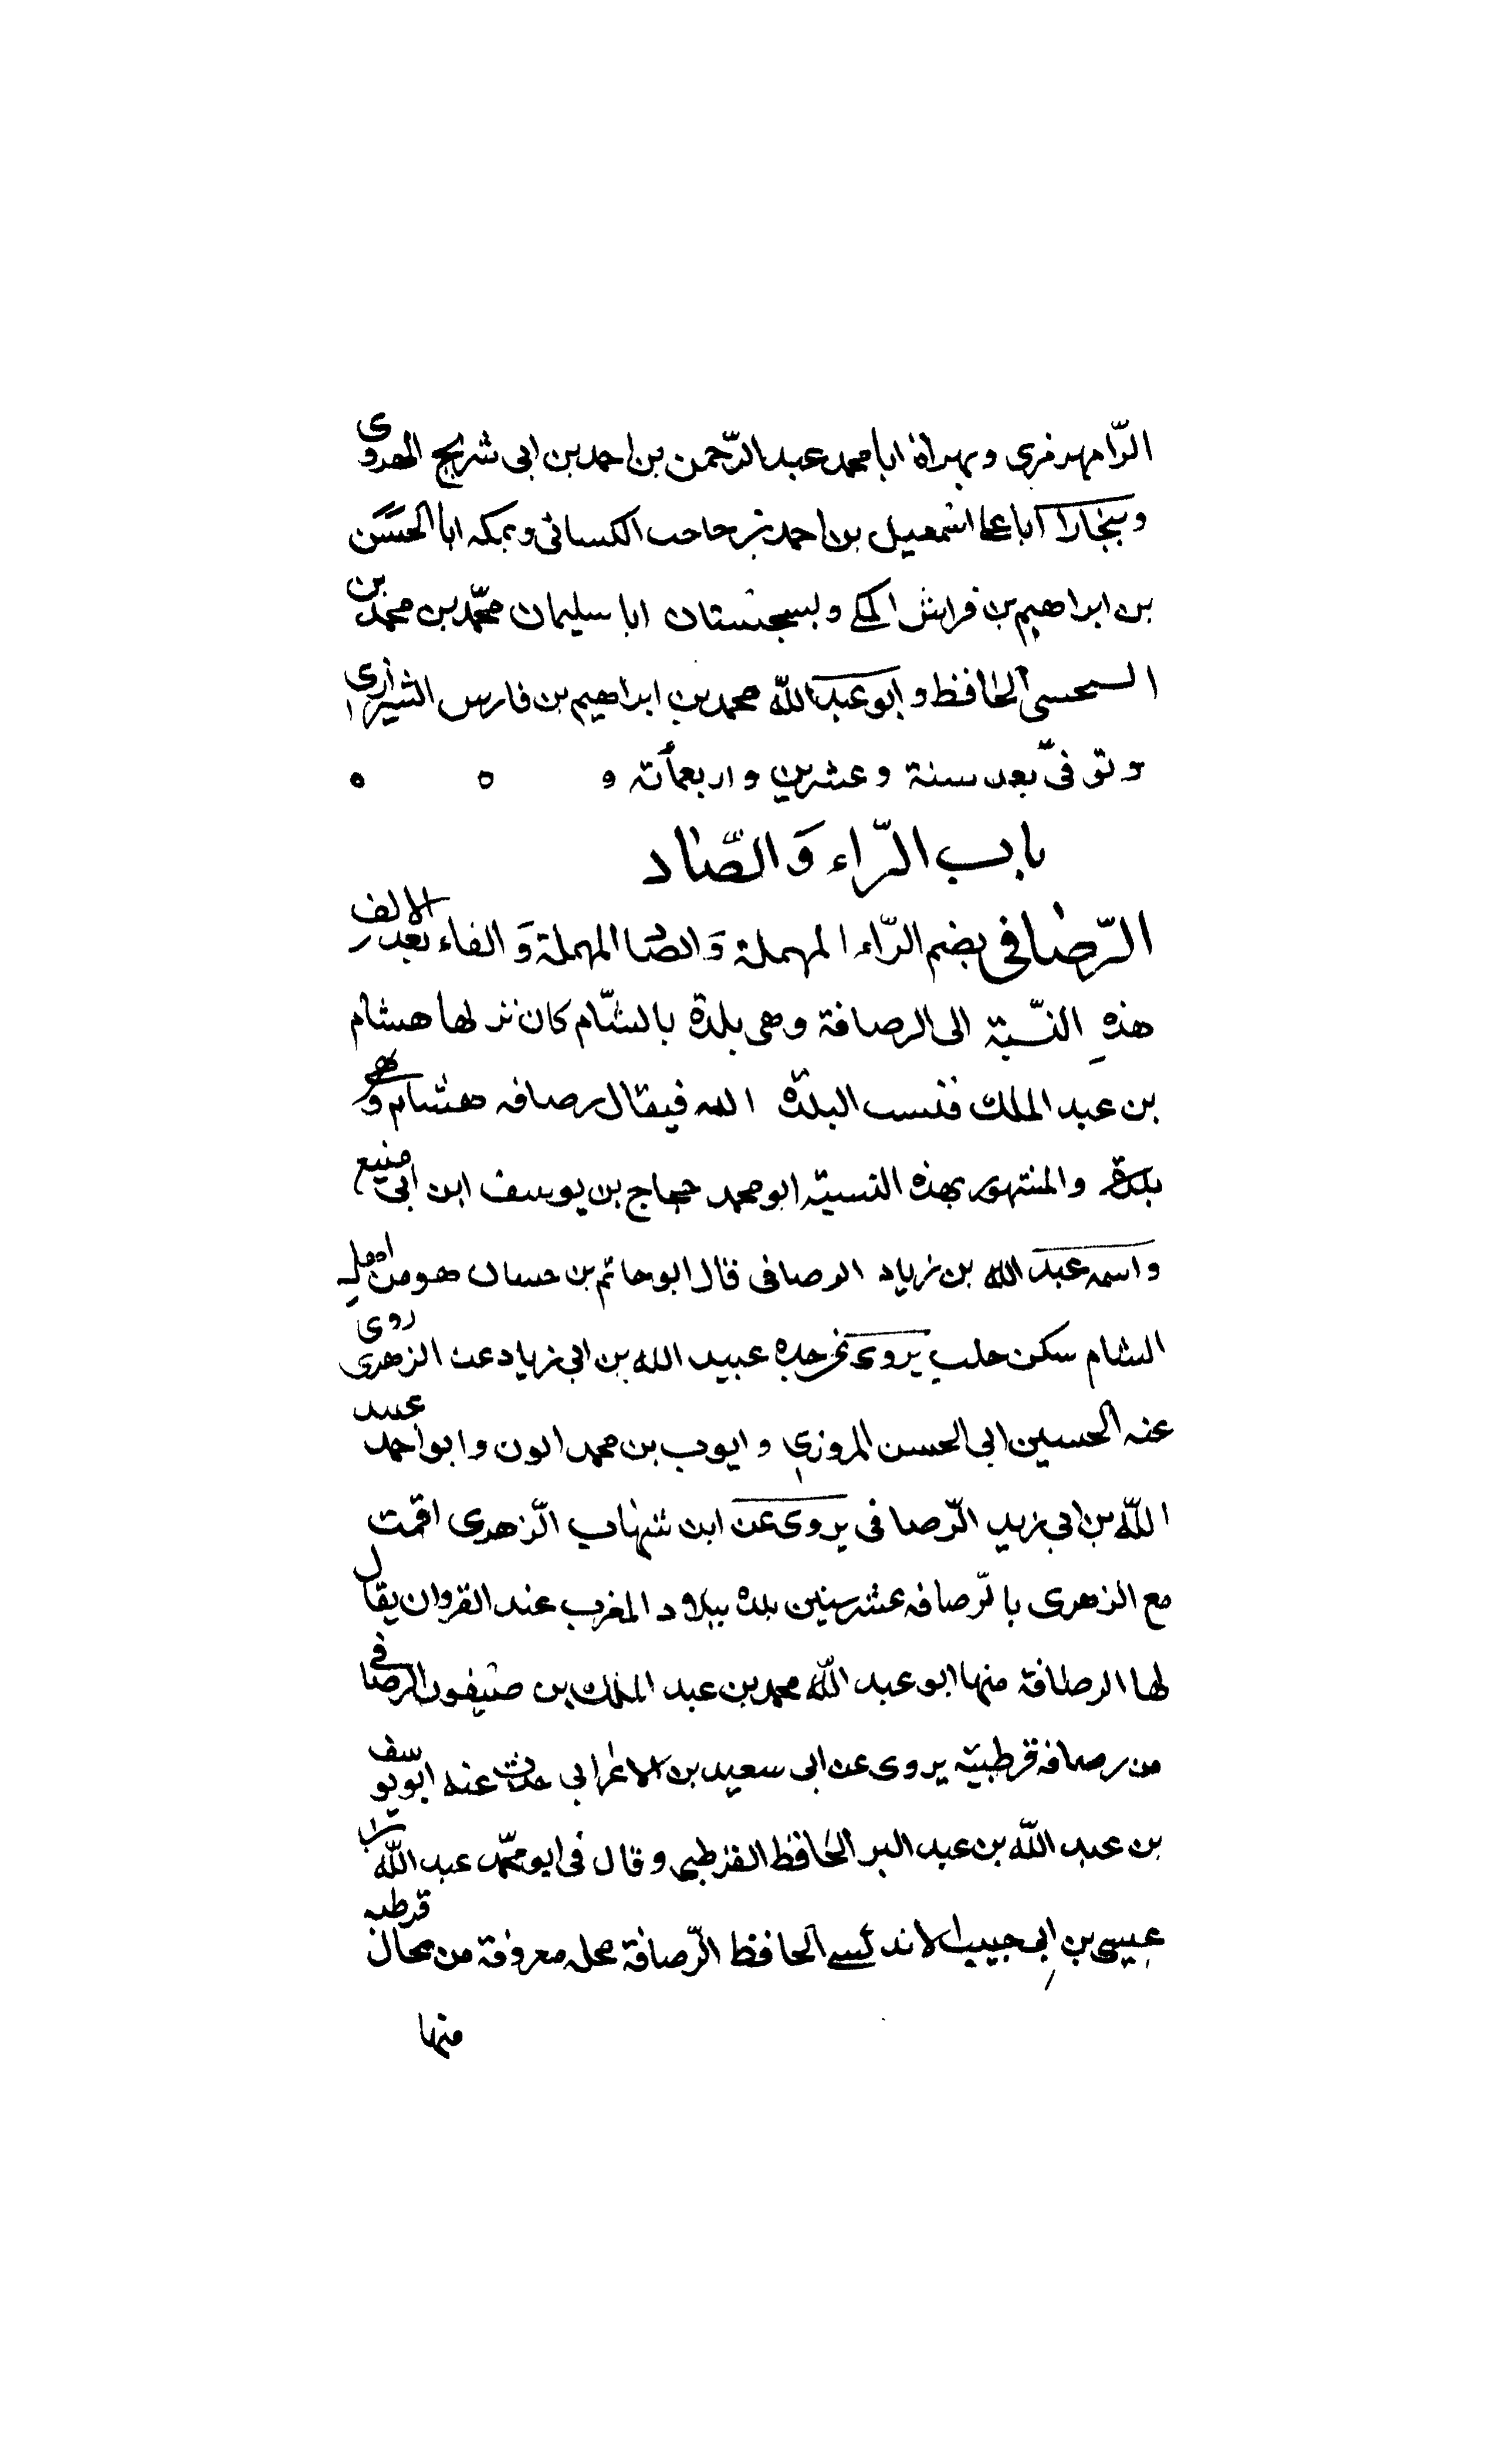 الرّامهرمزى وبهراة ابا محمد عبد الرّحمن بن احمد بن ابى شريح الهروى
وببخارا ابا على اسمعيل بن احمد بن حاجب الكسائى وبمكه ابا الحسن
بن ابراهيم بن فراش المكى وبسجستان ابا سليمان محمّد بن محمد بن
الحافظ وابو عبد اللّه محمد بن ابراهيم بن فارس الشيرازى
وتوفىّ بعد سنة وعشرين واربعمأته ه ه ه
باب الرّاء وَالصّاد
الرّصافى بضم الرّاء المهملة وَالصاد المهملة وَالفاء بعد الالف
هذهِ النسّبة الى الرصافة وهى بلدة بالشّام كان نزلها هشام
بن عبد الملك فنسب البلدة اليه فيقال رصافه هشام وهى
بلدة والمشهور بهذه النسبة ابو محمد حجاج بن يوسف ابن ابى منيع
واسمه عبد الله بن زياد الرصافى قال ابو حاتم بن حسان هو من اهل
الشام سكن حلب يروى عن جده عبيد الله بن ابى زياد عن الزهرى روى
عنه الحسين ابى الحسن المروزى وايوب بن محمد الون وابو احمد عبيد
اللّه بن ابى زيد الرّصافى يروى عن ابن شهاب الزّهرى اقمت
مع الزهرى بالرّصافه عشر سنين بلده ببلاد المغرب عند القروان يقال
لها الرصافة منها ابو عبد اللّه محمد بن عبد الملك بن ضيفون الرصافى
من رصافه قرطبة يروى عن ابى سعيد بن الاعرابى حدث عنه ابو يوسف
بن عبد اللّه بن عبد البر الحافظ القرطبى وقال فى ابو محمّد عبد اللّه بن
عيسى بن ابى حبيب الاندلسى الحافظ الرّصافة محله معروفة من محال قرطبه
منها